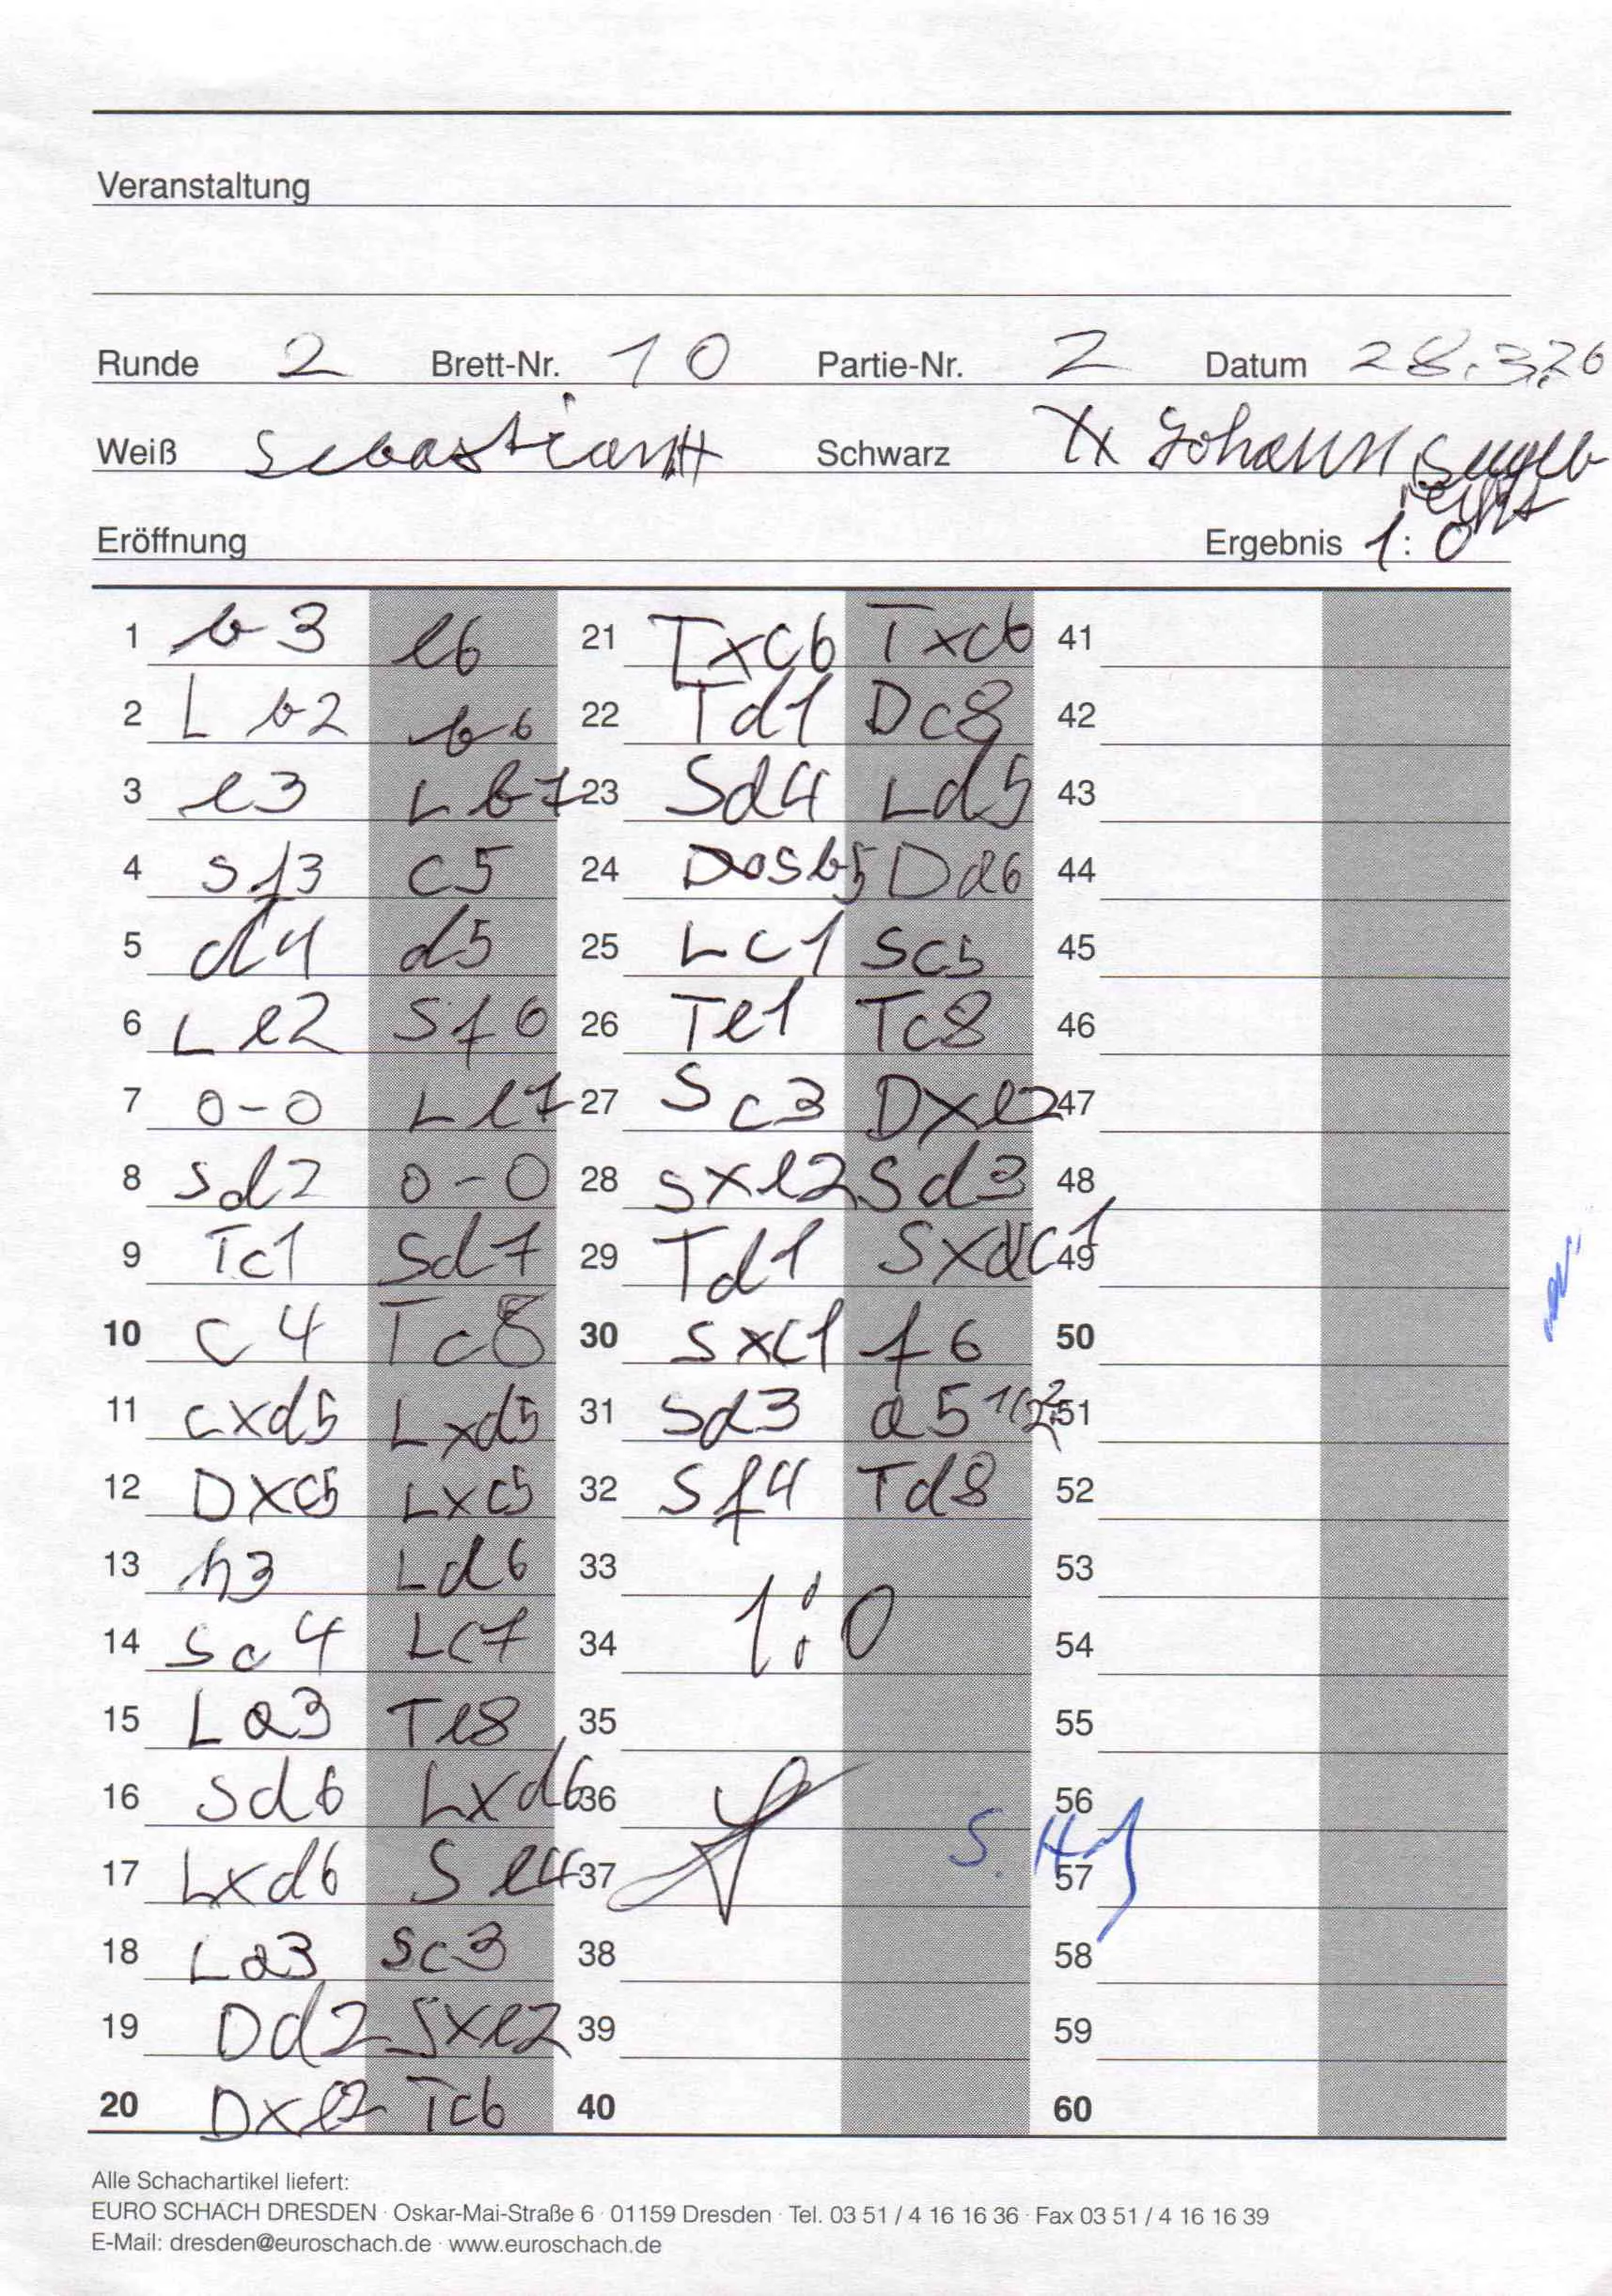 Veranstaltung
Runde 2 Brett-Nr. 10 Partie-Nr. 2 Datum 28.3.26
Weiß Sebastian H Schwarz Johann
Eröffnung Ergebnis 1:0
1 b3 e6 21 Txc6 Txc6 41
2 Lb2 b6 22 Td1 Dc8 42
3 e3 Lb7 23 Sd4 Ld5 43
4 Sf3 c5 24 Sb5 Dd6 44
5 d4 d5 25 Lc1 Sc5 45
6 Le2 Sf6 26 Te1 Tc8 46
7 0-0 Le7 27 Sc3 Dxe2 47
8 Sd2 0-0 28 Sxe2 Sd3 48
9 Tc1 Sd7 29 Td1 Sxc1 49
10 c4 Tc8 30 Sxc1 f6 50
11 cxd5 Lxd5 31 Sd3 a5 51
12 Dxc5 Lxc5 32 Sf4 Td8 52
13 h3 Ld6 33 53
14 Sc4 Lc7 34 1:0 54
15 La3 Te8 35 55
16 Sd6 Lxd6 36 56
17 Lxd6 Se4 37 S.H 57
18 La3 Sc3 38 58
19 Dd2 Sxe2 39 59
20 Dxe2 Tc6 40 60
Alle Schachartikel liefert:
EURO SCHACH DRESDEN · Oskar-Mai-Straße 6 · 01159 Dresden · Tel. 03 51 / 4 16 16 36 · Fax 03 51 / 4 16 16 39
E-Mail: dresden@euroschach.de · www.euroschach.de